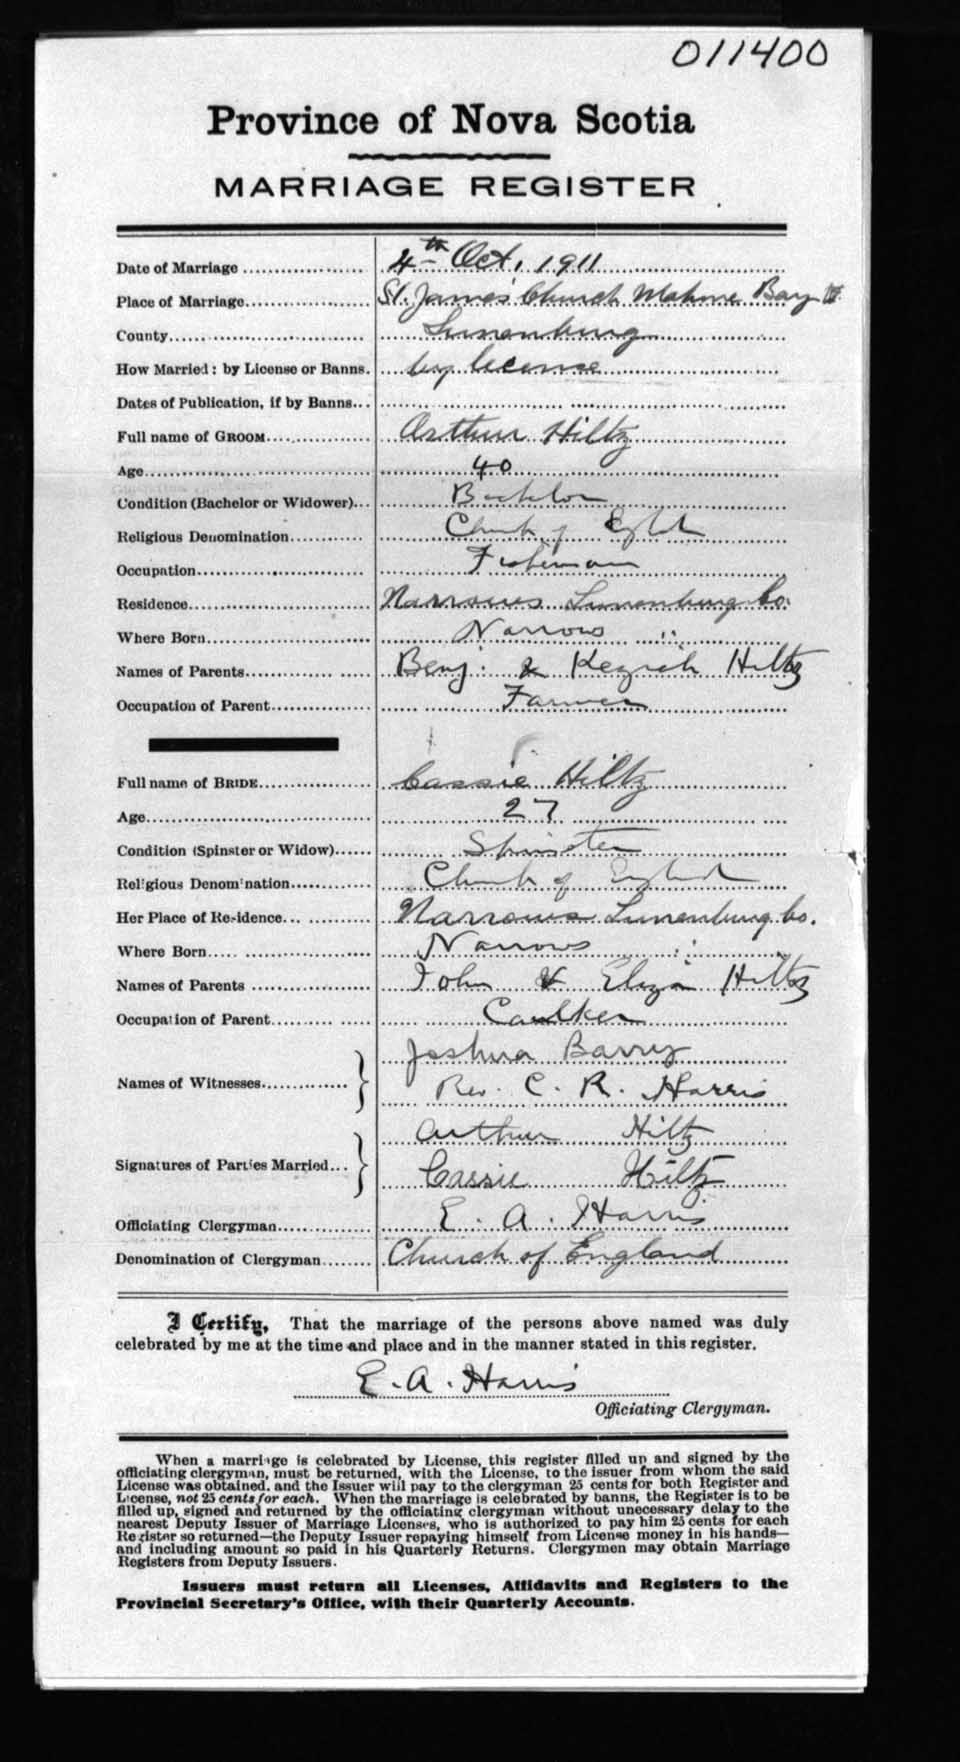 011400
Province of Nova Scotia
MARRIAGE REGISTER
Date of Marriage 4th Oct. 1911
Place of Marriage St. James' Church Mahone Bay
County Lunenburg
How Married: by License or Banns. by license
Dates of Publication, if by Banns
Full name of GROOM Arthur Hiltz
Age 40
Condition (Bachelor or Widower) Bachelor
Religious Denomination Church of England
Occupation Fisherman
Residence Narrows Lunenburg Co.
Where Born Narrows "
Names of Parents Benj. & Keziah Hiltz
Occupation of Parent Farmer
Full name of BRIDE Cassie Hiltz
Age 27
Condition (Spinster or Widow) Spinster
Religious Denomination Church of England
Her Place of Residence Narrows Lunenburg Co.
Where Born Narrows "
Names of Parents John & Eliza Hiltz
Occupation of Parent Caulker
Joshua Barry
Names of Witnesses
Rev. C. R. Harris
Arthur Hiltz
Signatures of Parties Married
Cassie Hiltz
Officiating Clergyman E. A. Harris
Denomination of Clergyman Church of England
I Certify, That the marriage of the persons above named was duly
celebrated by me at the time and place and in the manner stated in this register.
E. A. Harris
Officiating Clergyman.
When a marriage is celebrated by License, this register filled up and signed by the
officiating clergyman, must be returned, with the License, to the issuer from whom the said
License was obtained, and the Issuer will pay to the clergyman 25 cents for both Register and
License, not 25 cents for each. When the marriage is celebrated by banns, the Register is to be
filled up, signed and returned by the officiating clergyman without unnecessary delay to the
nearest Deputy Issuer of Marriage Licenses, who is authorized to pay him 25 cents for each
Register so returned—the Deputy Issuer repaying himself from License money in his hands—
and including amount so paid in his Quarterly Returns. Clergymen may obtain Marriage
Registers from Deputy Issuers.
Issuers must return all Licenses, Affidavits and Registers to the
Provincial Secretary's Office, with their Quarterly Accounts.